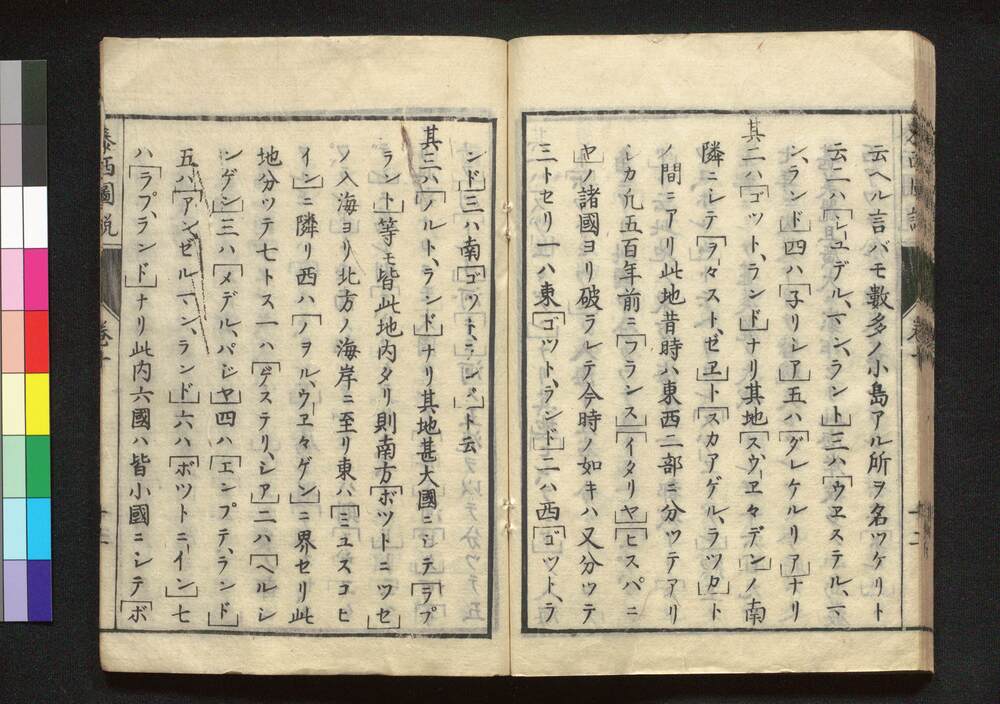 云ヘル言バモ數多ノ小島アル所ヲ名ツケリト
云二ハ「シユデル、マン、ラント」三ハ「ウヱステル、マ
ン、ランド」四ハ「子リシア」五ハ「グレケルリア」ナリ
其二ハ「ゴツト、ランド」ナリ其地「スウヱ々デン」ノ南
隣ニシテ「ヲ々スト、ゼヱ」ト「スカアゲル、ラツカ」ト
ノ間ニアリ此地昔時ハ東西二部ニ分ツテアリ
シカ凡五百年前ニ「フランス」「イタリヤ」「ヒスパニ
ヤ」ノ諸國ヨリ破ラレテ今時ノ如キハ又分ツテ
三トセリ一ハ東「ゴツト、ランド」二ハ西「ゴツト、ラ
ンド」三ハ南「ゴツト、ランド」ト云
其三ハ「ノルト、ランド」ナリ其地甚大國ニシテ「ラプ
ラント」等モ皆此地内タリ則南方「ボツトニツセ」
ノ入海ヨリ北方ノ海岸ニ至リ東ハ「ミユスコヒ
イン」ニ隣リ西ハ「ノヲル、ウヱ々ゲン」ニ界セリ此
地分ツテ七トス一ハ「ゲステリ、シア」二ハ「ヘルシ
ンゲン」三ハ「メデル、パジヤ」四ハ「エンプテ、ランド」
五ハ「アンゼル、マン、ランド」六ハ「ボツトニ、イン」七
ハ「ラプ、ランド」ナリ此内六國ハ皆小國ニシテ「ボ
泰西圖説
卷十